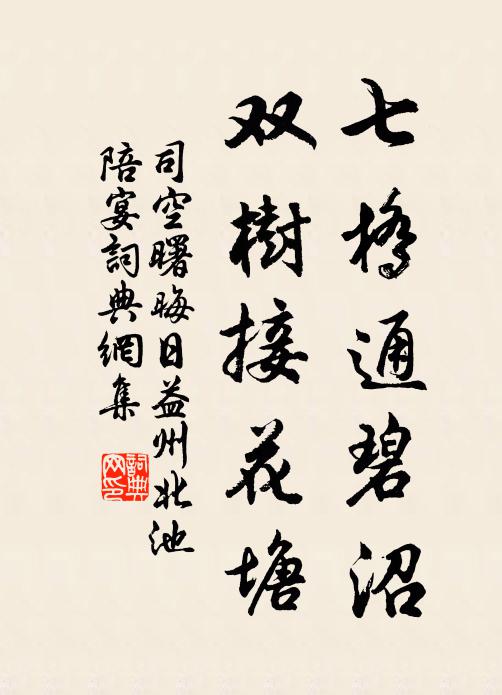 七橋通碧沼
双樹接花塘
司空曙晦日益州北池
陪宴詞典網集
詞典网印